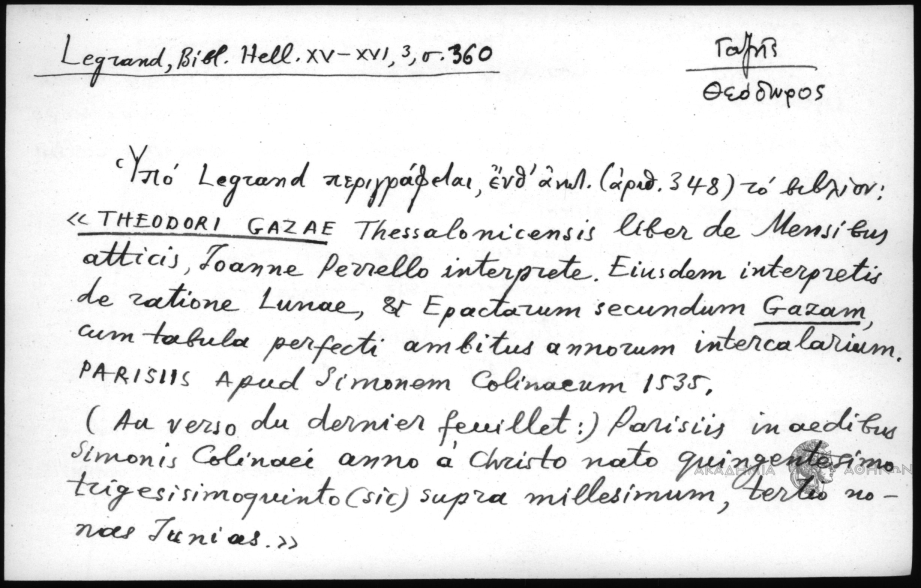 Legrand, Bibl. Hell. XV-XVI, 3, σ. 360
Γαζῆς
Θεόδωρος
Ὑπό Legrand περιγράφεται, ἔνθ' ἀνωτ. (ἀριθ. 348) τό βιβλίον:
«THEODORI GAZAE Thessalonicensis liber de Mensibus
atticis, Joanne Perrello interprete. Eiusdem interpretis
de ratione Lunae, & Epactarum secundum Gazam,
cum tabula perfecti ambitus annorum intercalarium.
PARISIIS Apud Simonem Colinaeum 1535.
(Au verso du dernier feuillet:) Parisiis in aedibus
Simonis Colinaei anno à Christo nato quingentesimo
trigesisimoquinto (sic) supra millesimum, tertio no-
nas Junias.»
ΑΚΑΔΗΜΙΑ ΑΘΗΝΩΝ